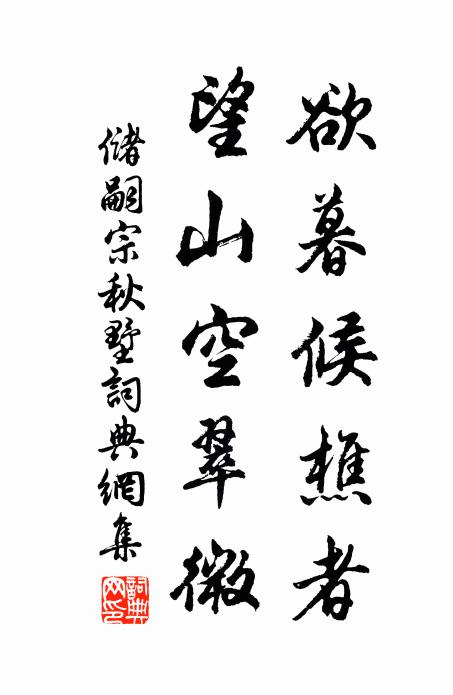 欲暮候樵者
望山空翠微
儲嗣宗秋墅詞典網集
詞典網印